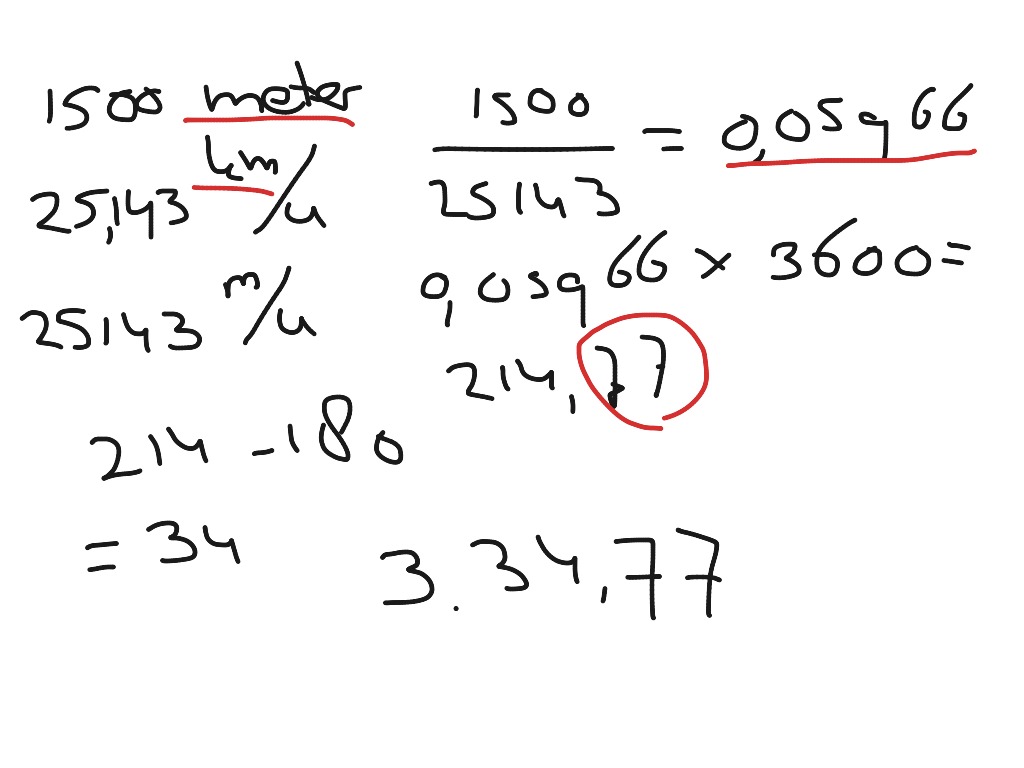 1500 meter
25,143 km/u
25143 m/u
1500
25143
= 0,05966
0,05966 x 3600 =
214,77
214 - 180
= 34
3.34,77